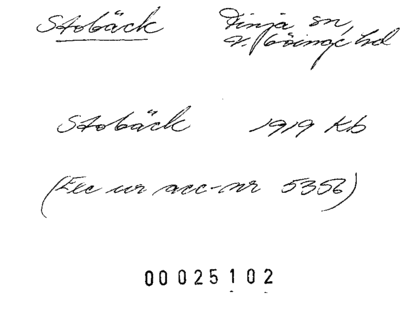 Stobäck Finja sn,
V. Göinge hd
Stobäck 1919 Kb
(Exc ur acc-nr 5356)
00 025102